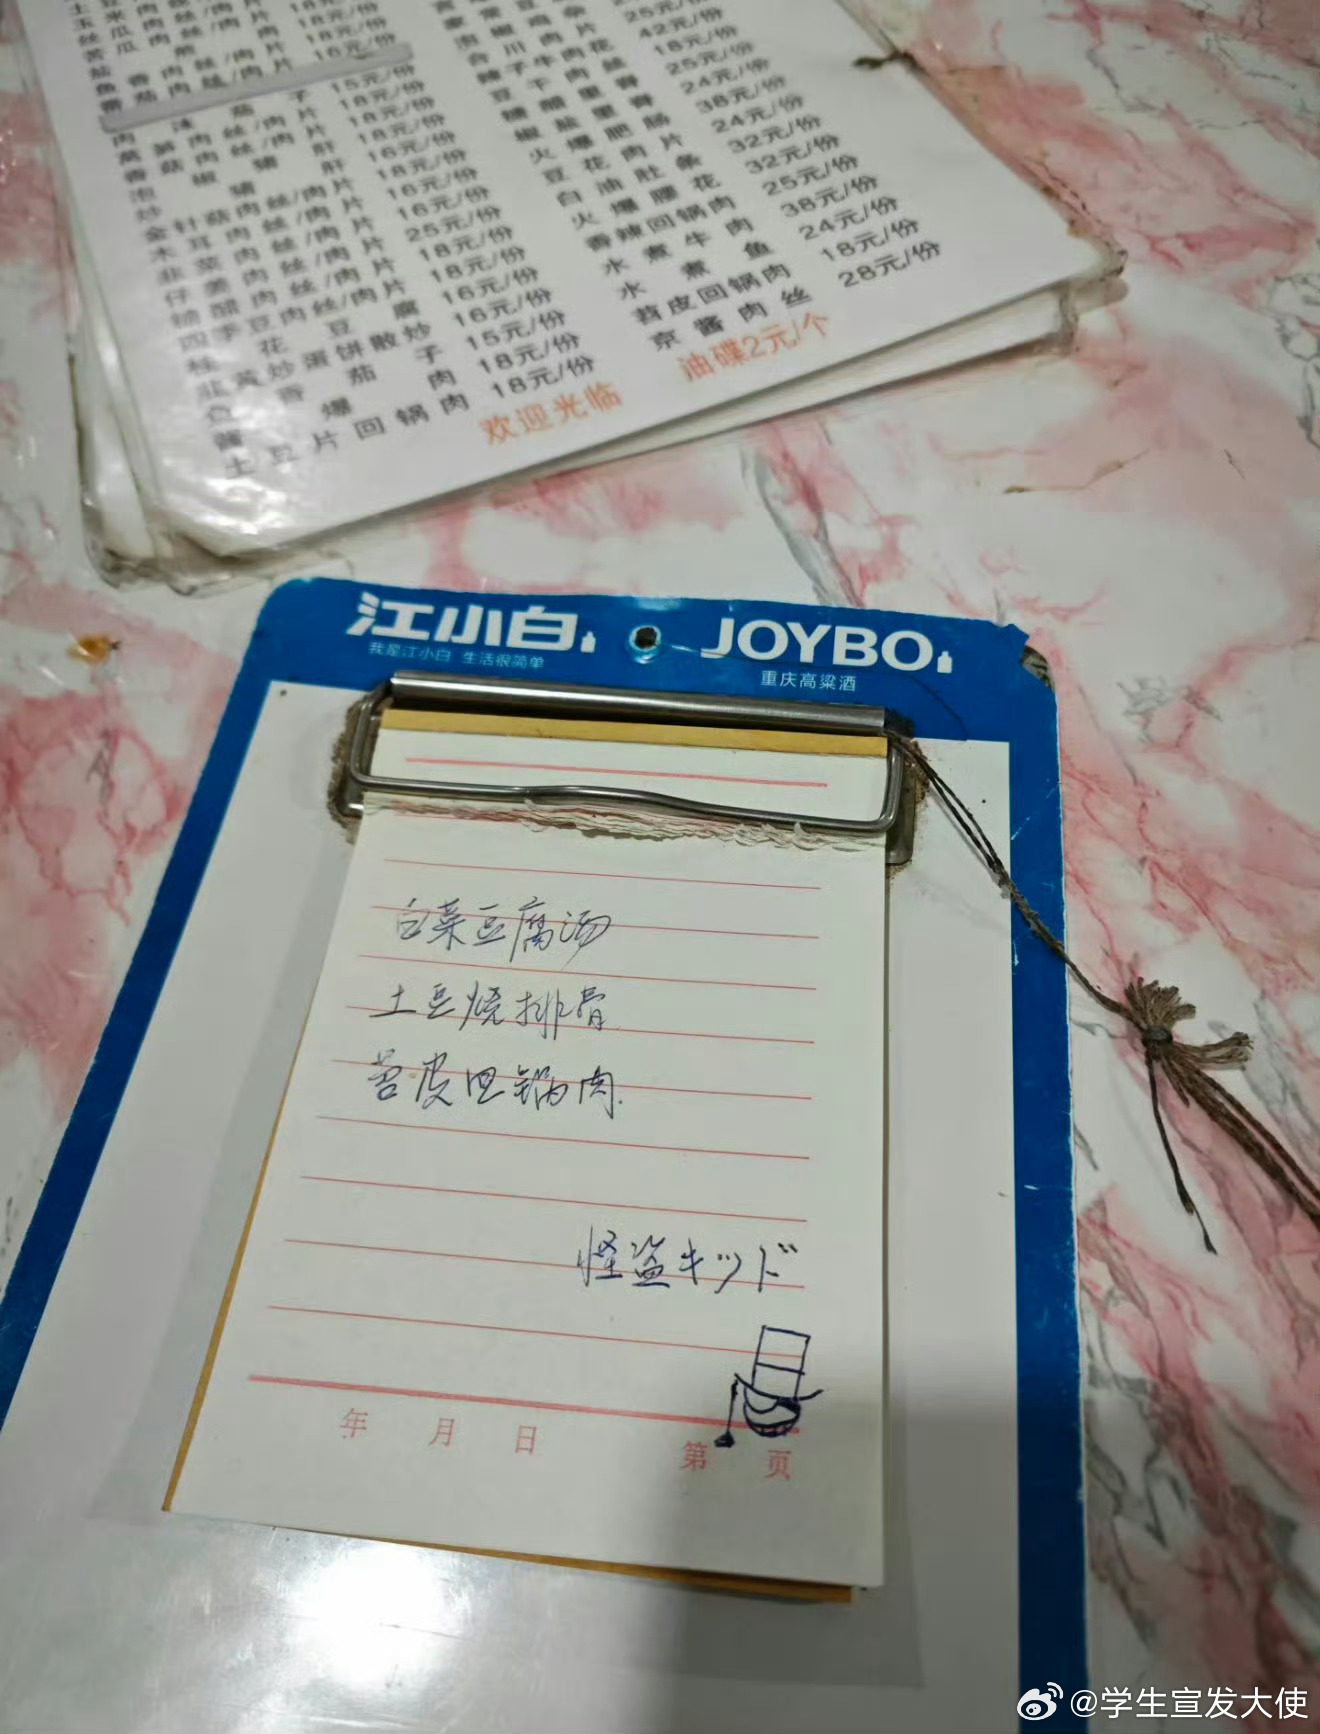 鱼香肉丝/肉片 18元/份
番茄肉丝/肉片 16元/份
肉沫茄子 15元/份
莴笋肉丝/肉片 18元/份
香菇肉丝/肉片 18元/份
泡椒猪肝 18元/份
炒猪肝 16元/份
金针菇肉丝/肉片 18元/份
木耳肉丝/肉片 16元/份
韭菜肉丝/肉片 16元/份
仔姜肉丝/肉片 25元/份
糖醋肉丝/肉片 18元/份
四季豆肉丝/肉片 18元/份
桂花豆腐 16元/份
韭黄炒蛋饼散炒 16元/份
鱼香茄子 15元/份
酱爆肉 18元/份
土豆片回锅肉 18元/份
合川肉片
辣子牛肉花 42元/份
豆干肉丝 18元/份
糖醋里脊 25元/份
椒盐里脊 24元/份
火爆肥肠 38元/份
豆花肉片 24元/份
白油肚条 32元/份
火爆腰花 32元/份
香辣回锅肉 25元/份
水煮牛肉 38元/份
水煮鱼 24元/份
苕皮回锅肉 18元/份
京酱肉丝 28元/份
欢迎光临 油碟2元/个
江小白 JOYBO
我是江小白 生活很简单 重庆高粱酒
白菜豆腐汤
土豆烧排骨
苕皮回锅肉.
怪盗キッド
年 月 日 第 页
@学生宣发大使